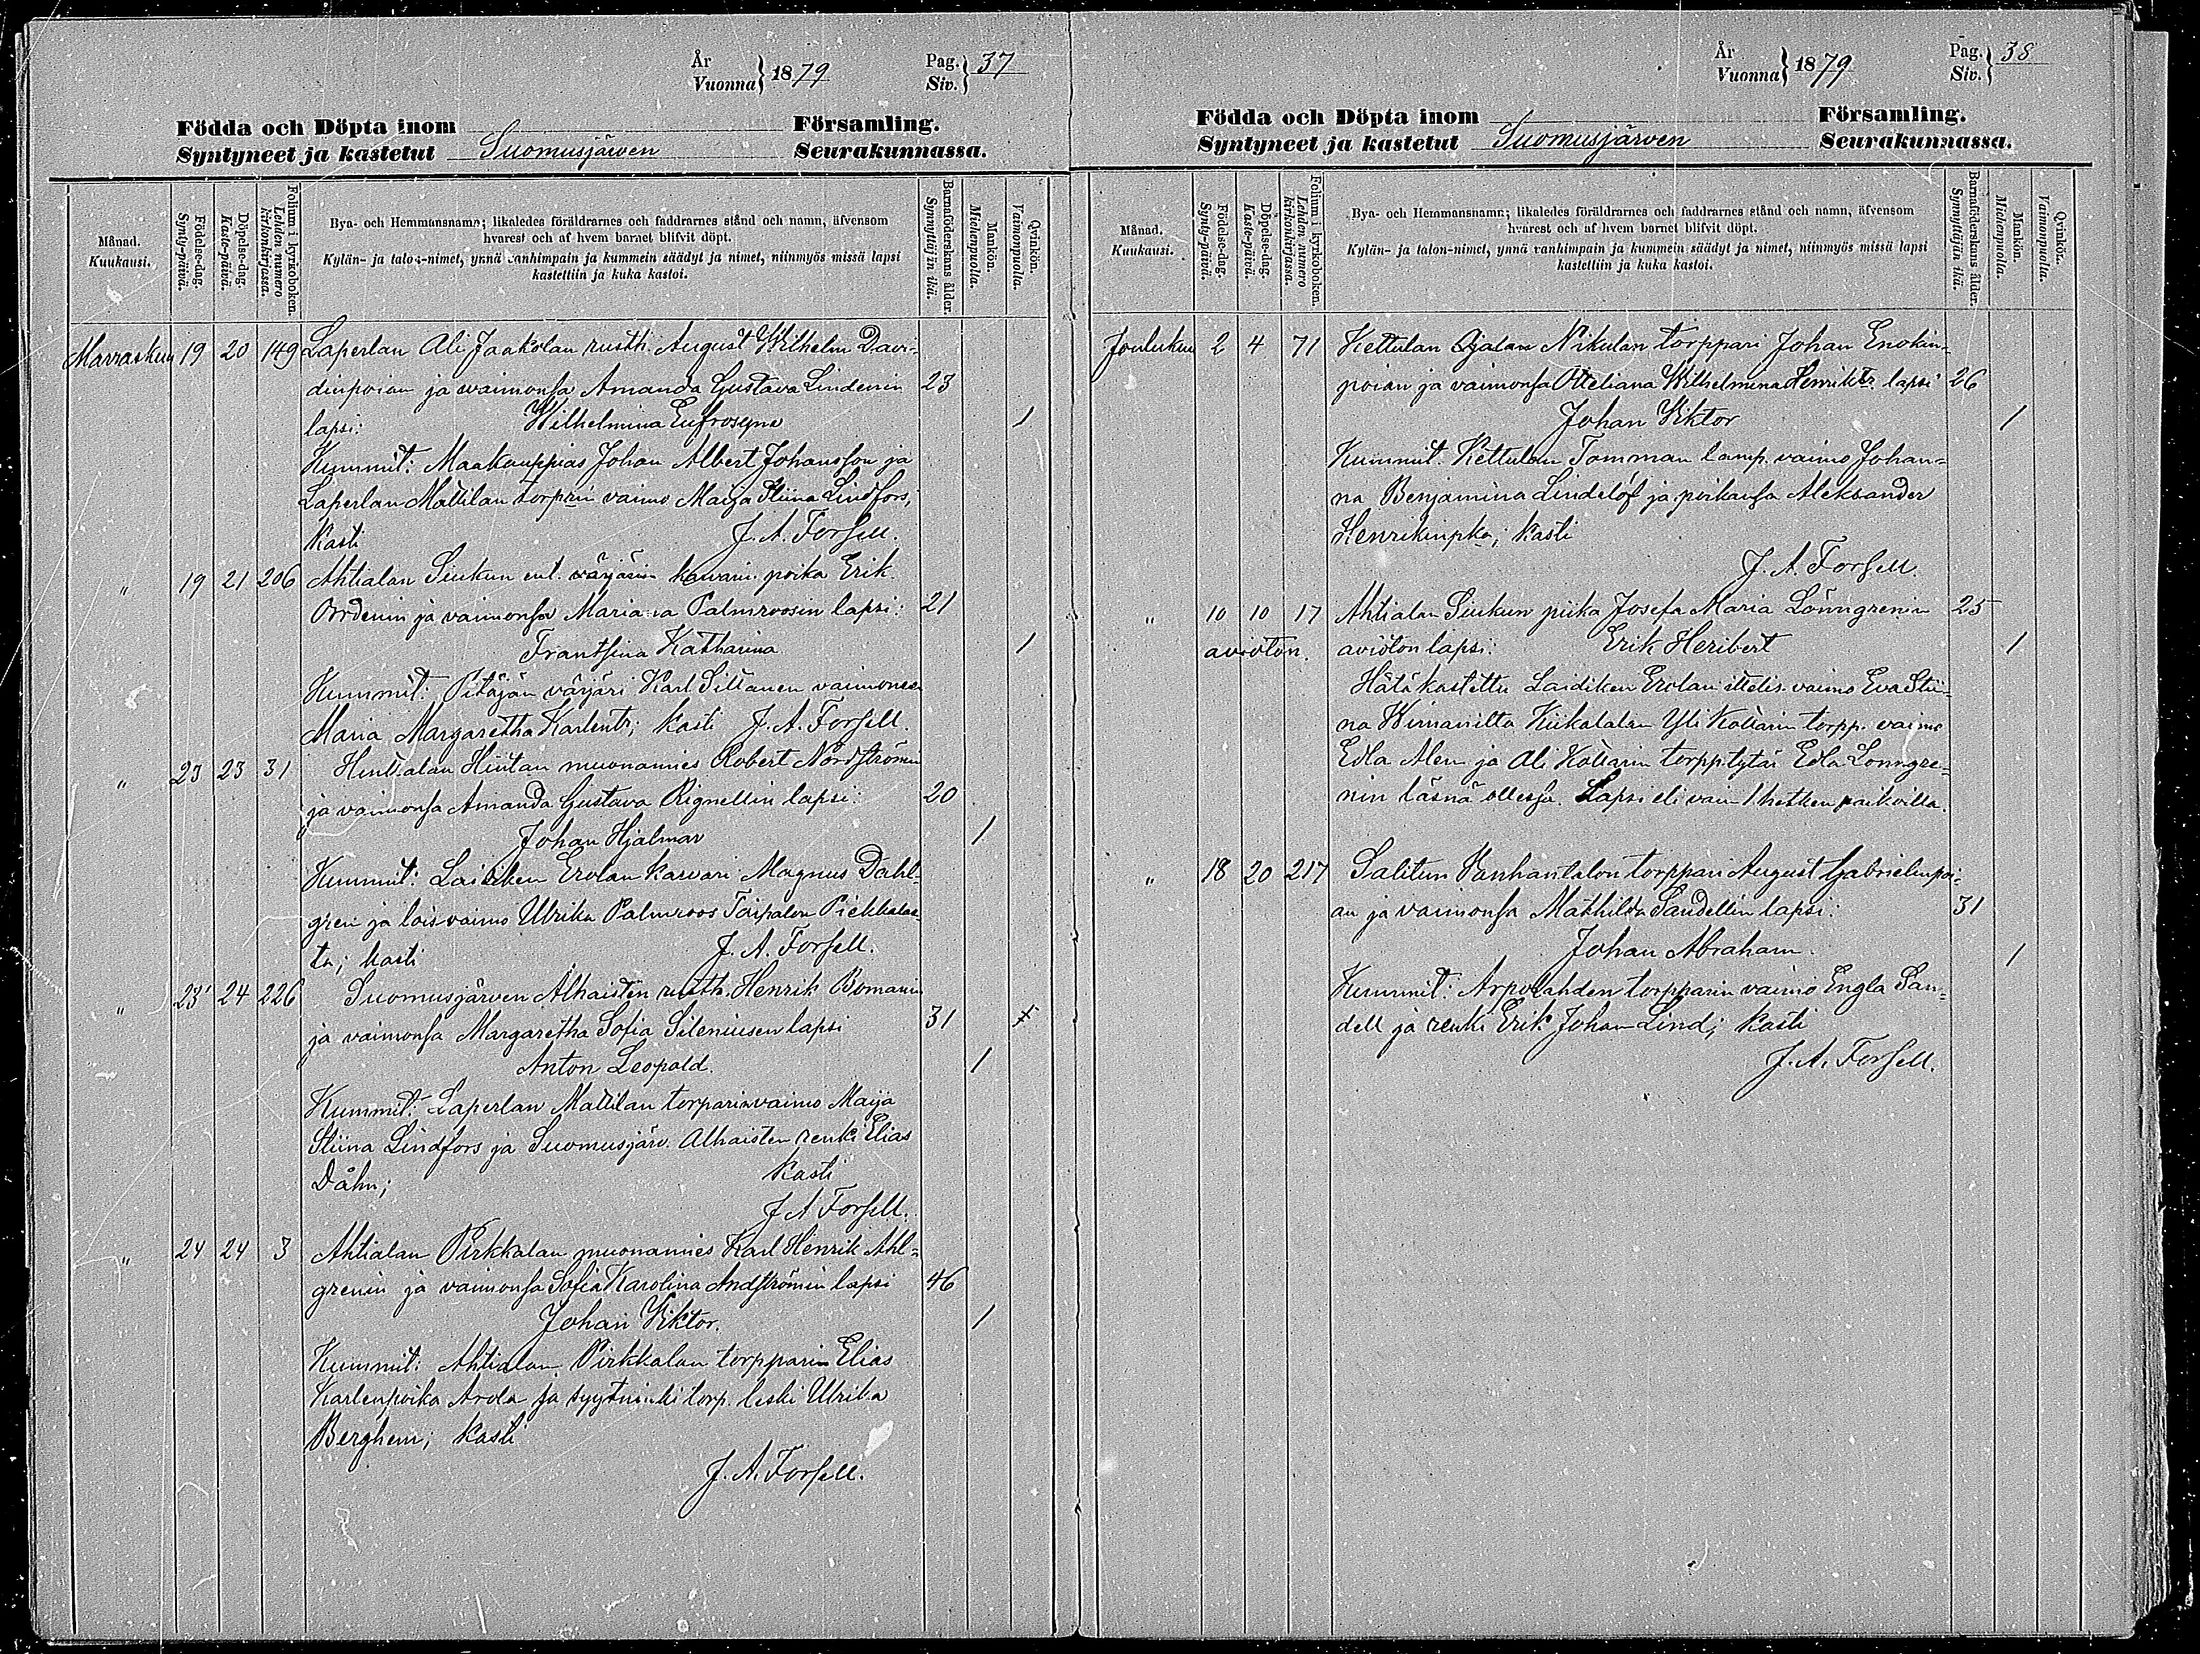 År
Vuonna } 1879
Pag.
Siv. } 37
Födda och Döpta inom Församling.
Syntyneet ja kastetut Suomusjärwen Seurakunnassa.
Månad.
Kuukausi.
Födelse-dag.
Synty-päivä.
Döpelse-dag.
Kaste-päivä.
Folium i kyrkoboken.
Lehden numero kirkonkirjassa.
Bya- och Hemmansnamn; likaledes föräldrarnes och faddrarnes stånd och namn, äfvensom
hvarest och af hvem barnet blifvit döpt.
Kylän- ja talon-nimet, ynnä vanhimpain ja kummein säädyt ja nimet, niinmyös missä lapsi
kastettiin ja kuka kastoi.
Barnaföderskans ålder.
Synnyttäjän ikä.
Mankön.
Miehenpuolla.
Qvinkön.
Vaimonpuolla.
Marraskuu 19 20 149 Laperlan Ali Jaakolan rusth. August Wilhelm Davi-
dinpoian ja waimonsa Amanda Gustava Lindenin 23
lapsi: Wilhelmina Eufrosyne 1
Kummit: Maakauppias Johan Albert Johansson ja
Laperlan Mattilan torprin vaimo Maija Stiina Lindfors;
Kasti J. A. Forsell.
" 19 21 206 Ahtialan Siukun ent. värjärin kawarin poika Erik
Ordenin ja vaimonsa Maria Palmroosin lapsi: 21
Frantsina Katharina 1
Kummit: Pitäjän värjäri Karl Sillanen vaimoneen
Maria Margaretha Karlentr; kasti J. A. Forsell.
" 23 23 31 Hintalan Hiitan muonamies Robert Nordströmin
ja vaimonsa Amanda Gustava Rignellin lapsi: 20
Johan Hjalmar 1
Kummit: Laidiken Erolan karvari Magnus Dahl-
gren ja loisvaimo Ulrika Palmroos Taipalen Piekkalas-
ta; kasti J. A. Forsell.
" 23 24 226 Suomusjärven Alhaisten rusth. Henrik Bomanin
ja vaimonsa Margaretha Sofia Sileniusen lapsi 31
Anton Leopold. 1
Kummit: Laperlan Mattilan torparinvaimo Maija
Stiina Lindfors ja Suomusjärv. Alhaisten renki Elias
Dåhn; kasti
J. A. Forsell.
" 24 24 3 Ahtialan Pirkkalan muonamies Karl Henrik Ahl-
grenin ja vaimonsa Sofia Karolina Andströmin lapsi 46
Johan Viktor. 1
Kummit: Ahtialan Pirkkalan torpparin Elias
Karlenpoika Arola ja syytninki torp. leski Ulrika
Berghem; kasti
J. A. Forsell.
År
Vuonna } 1879
Pag.
Siv. } 38
Födda och Döpta inom Församling.
Syntyneet ja kastetut Suomusjärven Seurakunnassa.
Månad.
Kuukausi.
Födelse-dag.
Synty-päivä.
Döpelse-dag.
Kaste-päivä.
Folium i kyrkoboken.
Lehden numero kirkonkirjassa.
Bya- och Hemmansnamn; likaledes föräldrarnes och faddrarnes stånd och namn, äfvensom
hvarest och af hvem barnet blifvit döpt.
Kylän- ja talon-nimet, ynnä vanhimpain ja kummein säädyt ja nimet, niinmyös missä lapsi
kastettiin ja kuka kastoi.
Barnaföderskans ålder.
Synnyttäjän ikä.
Mankön.
Miehenpuolla.
Qvinkön.
Vaimonpuolla.
Joulukuu 2 4 71 Kettulan Ojalan Nikulan torppari Johan Enokin-
poian ja vaimonsa Otteliana Wilhelmina Henriktr. lapsi 26
Johan Viktor 1
Kummit. Kettulan Tomman lamp. vaimo Johan-
na Benjamina Lindelöf ja poikansa Aleksander
Henrikinpka; kasti
J. A. Forsell.
" 10 10 17 Ahtialan Siukun piika Josefa Maria Lönngrenin 25
avioton. avioton lapsi: Erik Heribert 1
Hätäkastettu Laidiken Erolan ittelis. vaimo Eva Stii-
na Wimanilta Kiikalalan Yli Kottarin torpp. vaimo
Edla Alen ja Ali Kottarin torpptytär Edla Lönngre-
nin läsnä ollessa. Lapsi eli vain 1 hetken paikoilla.
" 18 20 217 Salitun Vanhantalon torppari August Gabrielinpoi-
an ja vaimonsa Mathilda Sandellin lapsi: 31
Johan Abraham. 1
Kummit: Arpolahden torpparin vaimo Engla San-
dell ja renki Erik Johan Lind; kasti
J. A. Forsell.